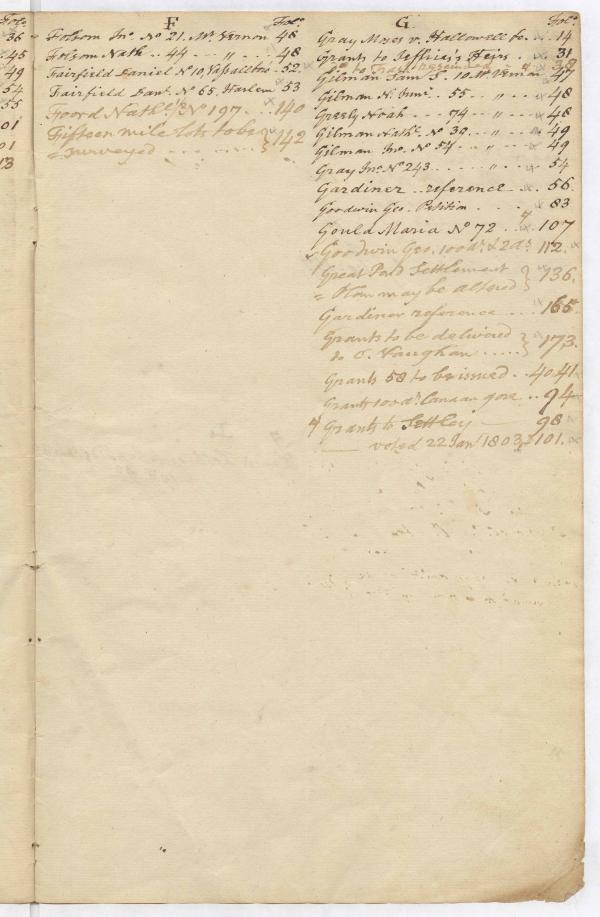 Fol.º
36
45
49
54
55
01
01
13
F
Fol.º
Folsom Jn.º Nº 21. Mt Vernon 48
Folsom Nath .. 44 .. .. " .. .. 48
Fairfield Daniel Nº 10, Vassalboro . 52
Fairfield Dan.l Nº 65. Harlem 53
Foord Nath.l Jr Nº 197 . . 140
Fifteen mile lots to be } 142
= surveyed . . . . . . .
G
Fol.º
Gray Moses v. Hallowell &c. . . 14
Grants to Jeffries's Heirs . . 31
Gilman Sam S. 10. Mt Vernon 47
Gilman N. . 55 . . " . . 48
Greely Noah . . . 74 . . " . . 48
Gilman Nath.l Nº 39 . . " . . 49
Gilman Jn.º Nº 54 . . " . . 49
Gray Jn.º Nº 243 . . . . " . . 54
Gardiner . . reference . . . 56
Goodwin Geo. Petition . . . . 83
Gould Maria Nº 72 . . 107
Goodwin Geo. 100 as & 2 as 112.
Great Pond Settlement } 136.
= Plan may be altered
Gardiner reference . . . . 165
Grants to be delivered } 173.
to C. Vaughan . . . . .
Grants 58 to be issued . . 40.41
Grants 100 as Canaan gore . . 94
Grants to Settlers — 98
—— voted 22 Jan.y 1803, 101.